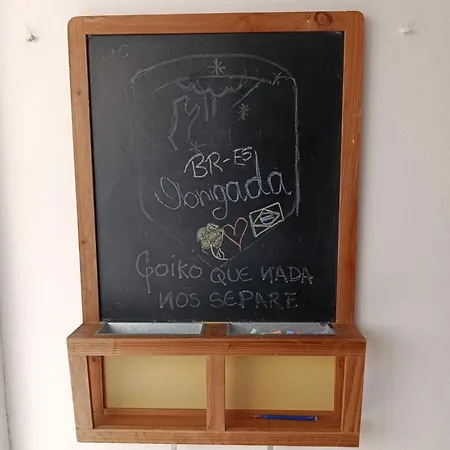 BR-ES
Obrigada
Goiko QUE NADA
NOS SEPARE